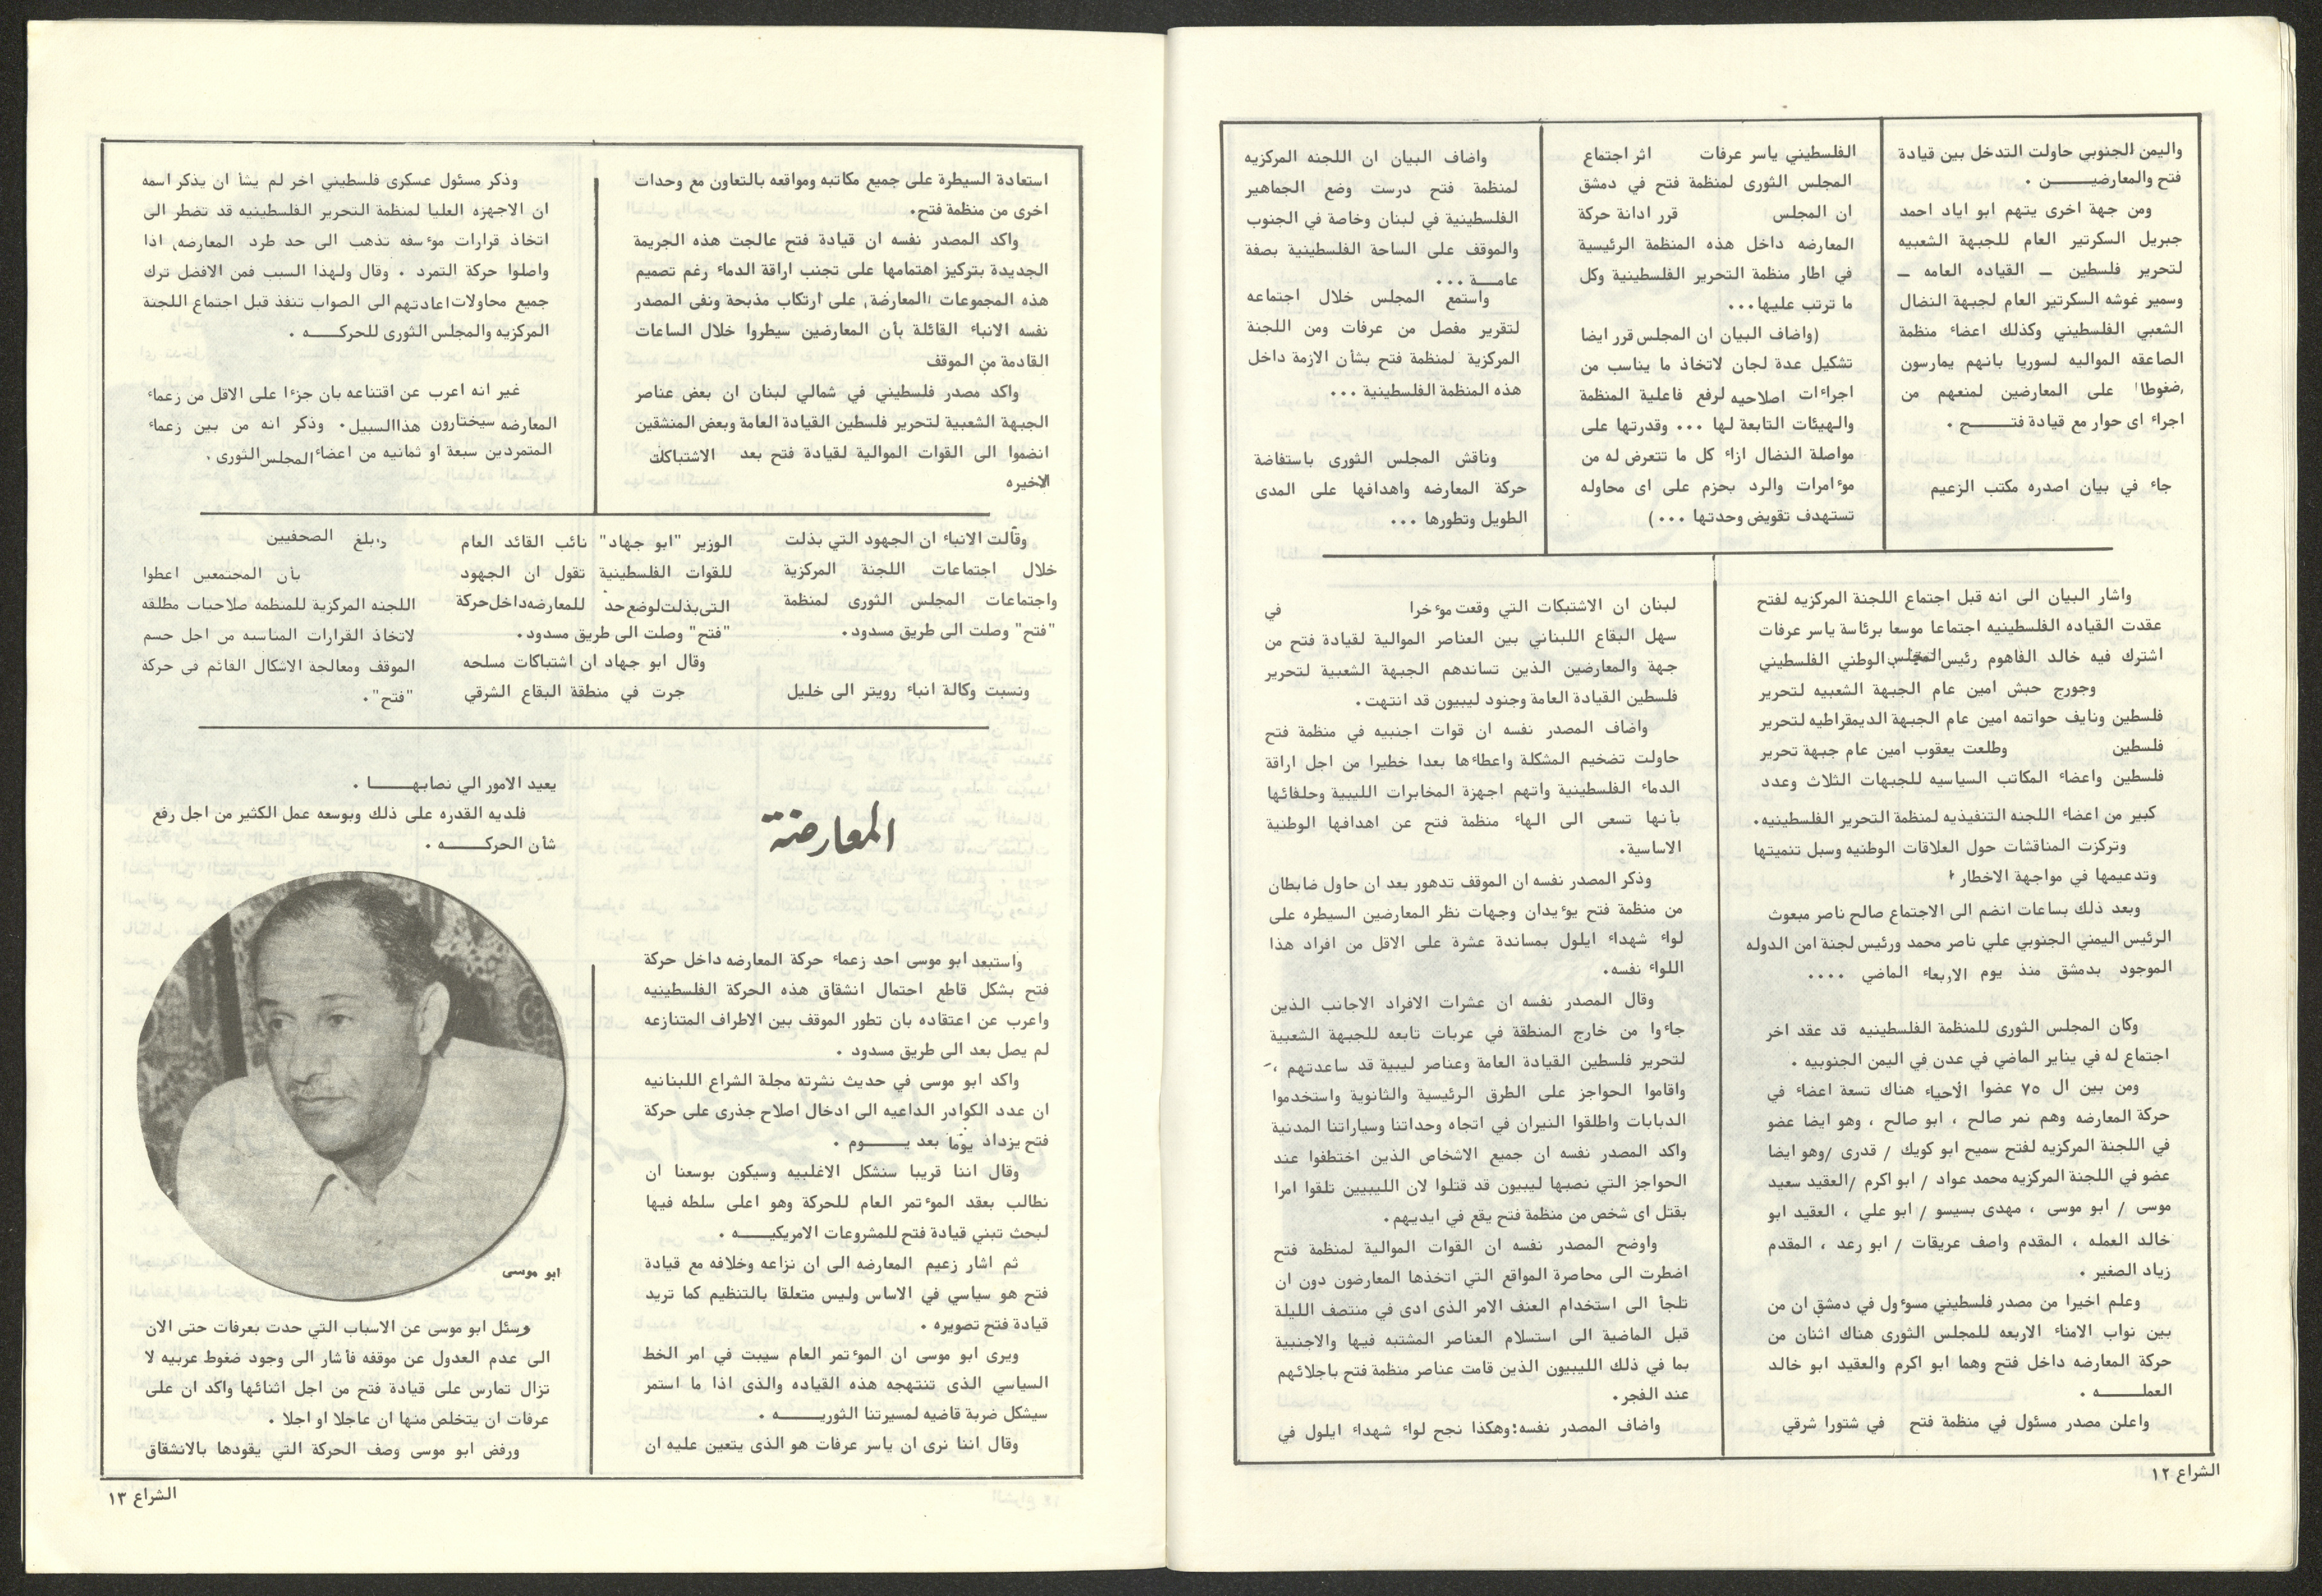 واليمن الجنوبي حاولت التدخل بين قيادة
فتح والمعارضيـــــن .
ومن جهة اخرى يتهم ابو اياد احمد
جبريل السكرتير العام للجبهة الشعبيه
لتحرير فلسطين ــ القياده العامه ــ
وسمير غوشه السكرتير العام لجبهة النضال
الشعبي الفلسطيني وكذلك اعضاء منظمة
الصاعقه المواليه لسوريا بانهم يمارسون
ضغوطا على المعارضين لمنعهم من
اجراء اى حوار مع قيادة فتـــــح .
جاء في بيان اصدره مكتب الزعيم
الفلسطيني ياسر عرفات اثر اجتماع
المجلس الثورى لمنظمة فتح في دمشق
ان المجلس قرر ادانة حركة
المعارضه داخل هذه المنظمة الرئيسية
في اطار منظمة التحرير الفلسطينية وكل
ما ترتب عليها...
(واضاف البيان ان المجلس قرر ايضا
تشكيل عدة لجان لاتخاذ ما يناسب من
اجراءات اصلاحيه لرفع فاعلية المنظمة
والهيئات التابعة لها ... وقدرتها على
مواصلة النضال ازاء كل ما تتعرض له من
موءامرات والرد بحزم على اى محاوله
تستهدف تقويض وحدتها ...)
واضاف البيان ان اللجنه المركزيه
لمنظمة فتح درست وضع الجماهير
الفلسطينية في لبنان وخاصة في الجنوب
والموقف على الساحة الفلسطينية بصفة
عامــــة ...
واستمع المجلس خلال اجتماعه
لتقرير مفصل من عرفات ومن اللجنة
المركزية لمنظمة فتح بشأن الازمة داخل
هذه المنظمة الفلسطينية ...
وناقش المجلس الثورى باستفاضة
حركة المعارضه واهدافها على المدى
الطويل وتطورها ...
واشار البيان الى انه قبل اجتماع اللجنة المركزيه لفتح
عقدت القياده الفلسطينيه اجتماعا موسعا برئاسة ياسر عرفات
اشترك فيه خالد الفاهوم رئيس المجلس الوطني الفلسطيني
وجورج حبش امين عام الجبهة الشعبيه لتحرير
فلسطين ونايف حواتمه امين عام الجبهة الديمقراطيه لتحرير
فلسطين وطلعت يعقوب امين عام جبهة تحرير
فلسطين واعضاء المكاتب السياسيه للجبهات الثلاث وعدد
كبير من اعضاء اللجنه التنفيذيه لمنظمة التحرير الفلسطينيه.
وتركزت المناقشات حول العلاقات الوطنيه وسبل تنميتها
وتدعيمها في مواجهة الاخطار
وبعد ذلك بساعات انضم الى الاجتماع صالح ناصر مبعوث
الرئيس اليمني الجنوبي علي ناصر محمد ورئيس لجنة امن الدوله
الموجود بدمشق منذ يوم الاربعاء الماضي ....
وكان المجلس الثورى للمنظمة الفلسطينيه قد عقد اخر
اجتماع له في يناير الماضي في عدن في اليمن الجنوبيه .
ومن بين ال ٧٥ عضوا الأحياء هناك تسعة اعضاء في
حركة المعارضه وهم نمر صالح ، ابو صالح ، وهو ايضا عضو
في اللجنة المركزيه لفتح سميح ابو كويك / قدرى /وهو ايضا
عضو في اللجنة المركزيه محمد عواد / ابو اكرم /العقيد سعيد
موسى / ابو موسى ، مهدى بسيسو / ابو علي ، العقيد ابو
خالد العمله ، المقدم واصف عريقات / ابو رعد ، المقدم
زياد الصغير .
وعلم اخيرا من مصدر فلسطيني مسوءول في دمشق ان من
بين نواب الامناء الاربعه للمجلس الثورى هناك اثنان من
حركة المعارضه داخل فتح وهما ابو اكرم والعقيد ابو خالد
العملـــــه .
واعلن مصدر مسئول في منظمة فتح في شتورا شرقي
لبنان ان الاشتبكات التي وقعت موءخرا في
سهل البقاع اللبناني بين العناصر الموالية لقيادة فتح من
جهة والمعارضين الذين تساندهم الجبهة الشعبية لتحرير
فلسطين القيادة العامة وجنود ليبيون قد انتهت.
واضاف المصدر نفسه ان قوات اجنبيه في منظمة فتح
حاولت تضخيم المشكلة واعطاءها بعدا خطيرا من اجل اراقة
الدماء الفلسطينية واتهم اجهزة المخابرات الليبية وحلفائها
بأنها تسعى الى الهاء منظمة فتح عن اهدافها الوطنية
الاساسية.
وذكر المصدر نفسه ان الموقف تدهور بعد ان حاول ضابطان
من منظمة فتح يوءيدان وجهات نظر المعارضين السيطره على
لواء شهداء ايلول بمساندة عشرة على الاقل من افراد هذا
اللواء نفسه.
وقال المصدر نفسه ان عشرات الافراد الاجانب الذين
جاءوا من خارج المنطقة في عربات تابعه للجبهة الشعبية
لتحرير فلسطين القيادة العامة وعناصر ليبية قد ساعدتهم ،
واقاموا الحواجز على الطرق الرئيسية والثانوية واستخدموا
الدبابات واطلقوا النيران في اتجاه وحداتنا وسياراتنا المدنية
واكد المصدر نفسه ان جميع الاشخاص الذين اختطفوا عند
الحواجز التي نصبها ليبيون قد قتلوا لان الليبيين تلقوا امرا
بقتل اى شخص من منظمة فتح يقع في ايديهم.
واوضح المصدر نفسه ان القوات الموالية لمنظمة فتح
اضطرت الى محاصرة المواقع التي اتخذها المعارضون دون ان
تلجأ الى استخدام العنف الامر الذى ادى في منتصف الليلة
قبل الماضية الى استسلام العناصر المشتبه فيها والاجنبية
بما في ذلك الليبيون الذين قامت عناصر منظمة فتح باجلائهم
عند الفجر.
واضاف المصدر نفسه:وهكذا نجح لواء شهداء ايلول في
الشراع ١٢
استعادة السيطرة على جميع مكاتبه ومواقعه بالتعاون مع وحدات
اخرى من منظمة فتح.
واكد المصدر نفسه ان قيادة فتح عالجت هذه الجريمة
الجديدة بتركيز اهتمامها على تجنب اراقة الدماء رغم تصميم
هذه المجموعات المعارضة على ارتكاب مذبحة ونفى المصدر
نفسه الانباء القائلة بأن المعارضين سيطروا خلال الساعات
القادمة من الموقف
واكد مصدر فلسطيني في شمالي لبنان ان بعض عناصر
الجبهة الشعبية لتحرير فلسطين القيادة العامة وبعض المنشقين
انضموا الى القوات الموالية لقيادة فتح بعد الاشتباكات
الاخيره
وذكر مسئول عسكرى فلسطيني اخر لم يشأ ان يذكر اسمه
ان الاجهزه العليا لمنظمة التحرير الفلسطينيه قد تضطر الى
اتخاذ قرارات موءسفه تذهب الى حد طرد المعارضه، اذا
واصلوا حركة التمرد . وقال ولهذا السبب فمن الافضل ترك
جميع محاولات اعادتهم الى الصواب تنفذ قبل اجتماع اللجنة
المركزيه والمجلس الثورى للحركـــــه .
غير انه اعرب عن اقتناعه بان جزءا على الاقل من زعماء
المعارضه سيختارون هذا السبيل. وذكر انه من بين زعماء
المتمردين سبعة او ثمانيه من اعضاء المجلس الثورى .
وقالت الانباء ان الجهود التي بذلت
خلال اجتماعات اللجنة المركزية
واجتماعات المجلس الثورى لمنظمة
"فتح" وصلت الى طريق مسدود.
ونسبت وكالة انباء رويتر الى خليل
الوزير "ابو جهاد" نائب القائد العام
للقوات الفلسطينية تقول ان الجهود
التى بذلت لوضع حد للمعارضه داخل حركة
"فتح" وصلت الى طريق مسدود.
وقال ابو جهاد ان اشتباكات مسلحه
جرت في منطقة البقاع الشرقي
وبلغ الصحفيين
بأن المجتمعين اعطوا
اللجنه المركزية للمنظمه صلاحيات مطلقه
لاتخاذ القرارات المناسبه من اجل حسم
الموقف ومعالجة الاشكال القائم في حركة
"فتح".
المعارضة
واستبعد ابو موسى احد زعماء حركة المعارضه داخل حركة
فتح بشكل قاطع احتمال انشقاق هذه الحركة الفلسطينيه
واعرب عن اعتقاده بان تطور الموقف بين الاطراف المتنازعه
لم يصل بعد الى طريق مسدود .
واكد ابو موسى في حديث نشرته مجلة الشراع اللبنانيه
ان عدد الكوادر الداعيه الى ادخال اصلاح جذرى على حركة
فتح يزداد يوما بعد يـــــوم .
وقال اننا قريبا سنشكل الاغلبيه وسيكون بوسعنا ان
نطالب بعقد الموءتمر العام للحركة وهو اعلى سلطه فيها
لبحث تبني قيادة فتح للمشروعات الامريكيـــــه .
ثم اشار زعيم المعارضه الى ان نزاعه وخلافه مع قيادة
فتح هو سياسي في الاساس وليس متعلقا بالتنظيم كما تريد
قيادة فتح تصويره .
ويرى ابو موسى ان الموءتمر العام سيبت في امر الخط
السياسي الذى تنتهجه هذه القياده والذى اذا ما استمر
سيشكل ضربة قاضيه لمسيرتنا الثوريـــــه .
وقال اننا نرى ان ياسر عرفات هو الذى يتعين عليه ان
يعيد الامور الي نصابهـــــا .
فلديه القدره على ذلك وبوسعه عمل الكثير من اجل رفع
شأن الحركـــــه .
ابو موسى
وسئل ابو موسى عن الاسباب التي حدت بعرفات حتى الان
الى عدم العدول عن موقفه فأشار الى وجود ضغوط عربيه لا
تزال تمارس على قيادة فتح من اجل اثنائها واكد ان على
عرفات ان يتخلص منها ان عاجلا او اجلا .
ورفض ابو موسى وصف الحركة التي يقودها بالانشقاق
الشراع ١٣